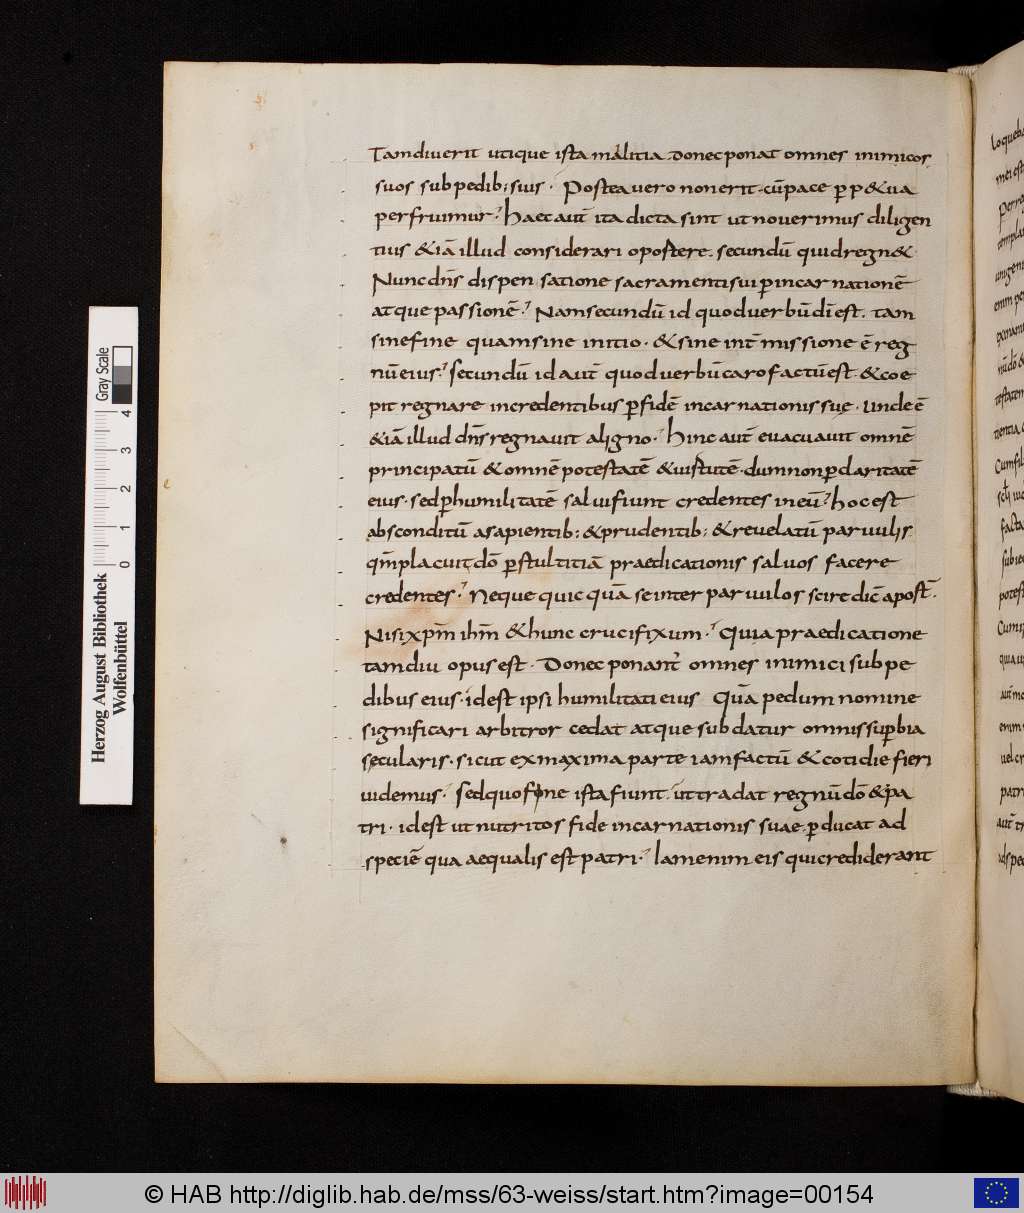 Tamdiu erit utique ista malitia donec ponat omnes inimicos
suos subpedib; suis. Postea uero non erit. cū pace ꝑp&ua
perfruimur. Haec aut̄ ita dicta sint ut nouerimus diligen
tius &iā illud considerari opostere. secundū quid regn&
Nunc dn̄s dispensatione sacramenti sui ꝑ incarnationē
atque passionē. Nam secundū id quod uerbū dī est. tam
sine fine quam sine initio. & sine int̄missione ē reg
nū eius. secundū id aut̄ quod uerbū caro factū est. & coe
pit regnare in credentibus ꝑ fidē incarnationis sue. unde ē
&iā illud dn̄s regnauit a ligno. Hinc aut̄ euacuauit omnē
principatū & omnē potestatē & uistutē. dum non ꝑ claritatē
eius. sed ꝑ humilitatē salui fiunt credentes in eū. hoc est
absconditū a sapientib; & prudentib; & reuelatū paruulis.
qm̄ placuit dō ꝑ stultitiā praedicationis saluos facere
credentes. Neque quicquā se inter paruulos scire dic̄ apost̄.
Nisi xpm̄ ihm̄ & hunc crucifixum. Quia praedicatione
tamdiu opus est. Donec ponant̄ omnes inimici sub pe
dibus eius. id est ipsi humilitati eius Quā pedum nomine
significari arbitror cedat atque subdatur omnis suꝑbia
secularis. sicut ex maxima parte iam factū & cotidie fieri
uidemus. Sed quo fine ista fiunt. ut tradat regnū dō & pa
tri. id est ut nutritos fide incarnationis suae. ꝑducat ad
speciē qua aequalis est patri. Iam enim eis qui crediderant
Herzog August Bibliothek
Wolfenbüttel
0 1 2 3 4
Gray Scale
© HAB http://diglib.hab.de/mss/63-weiss/start.htm?image=00154